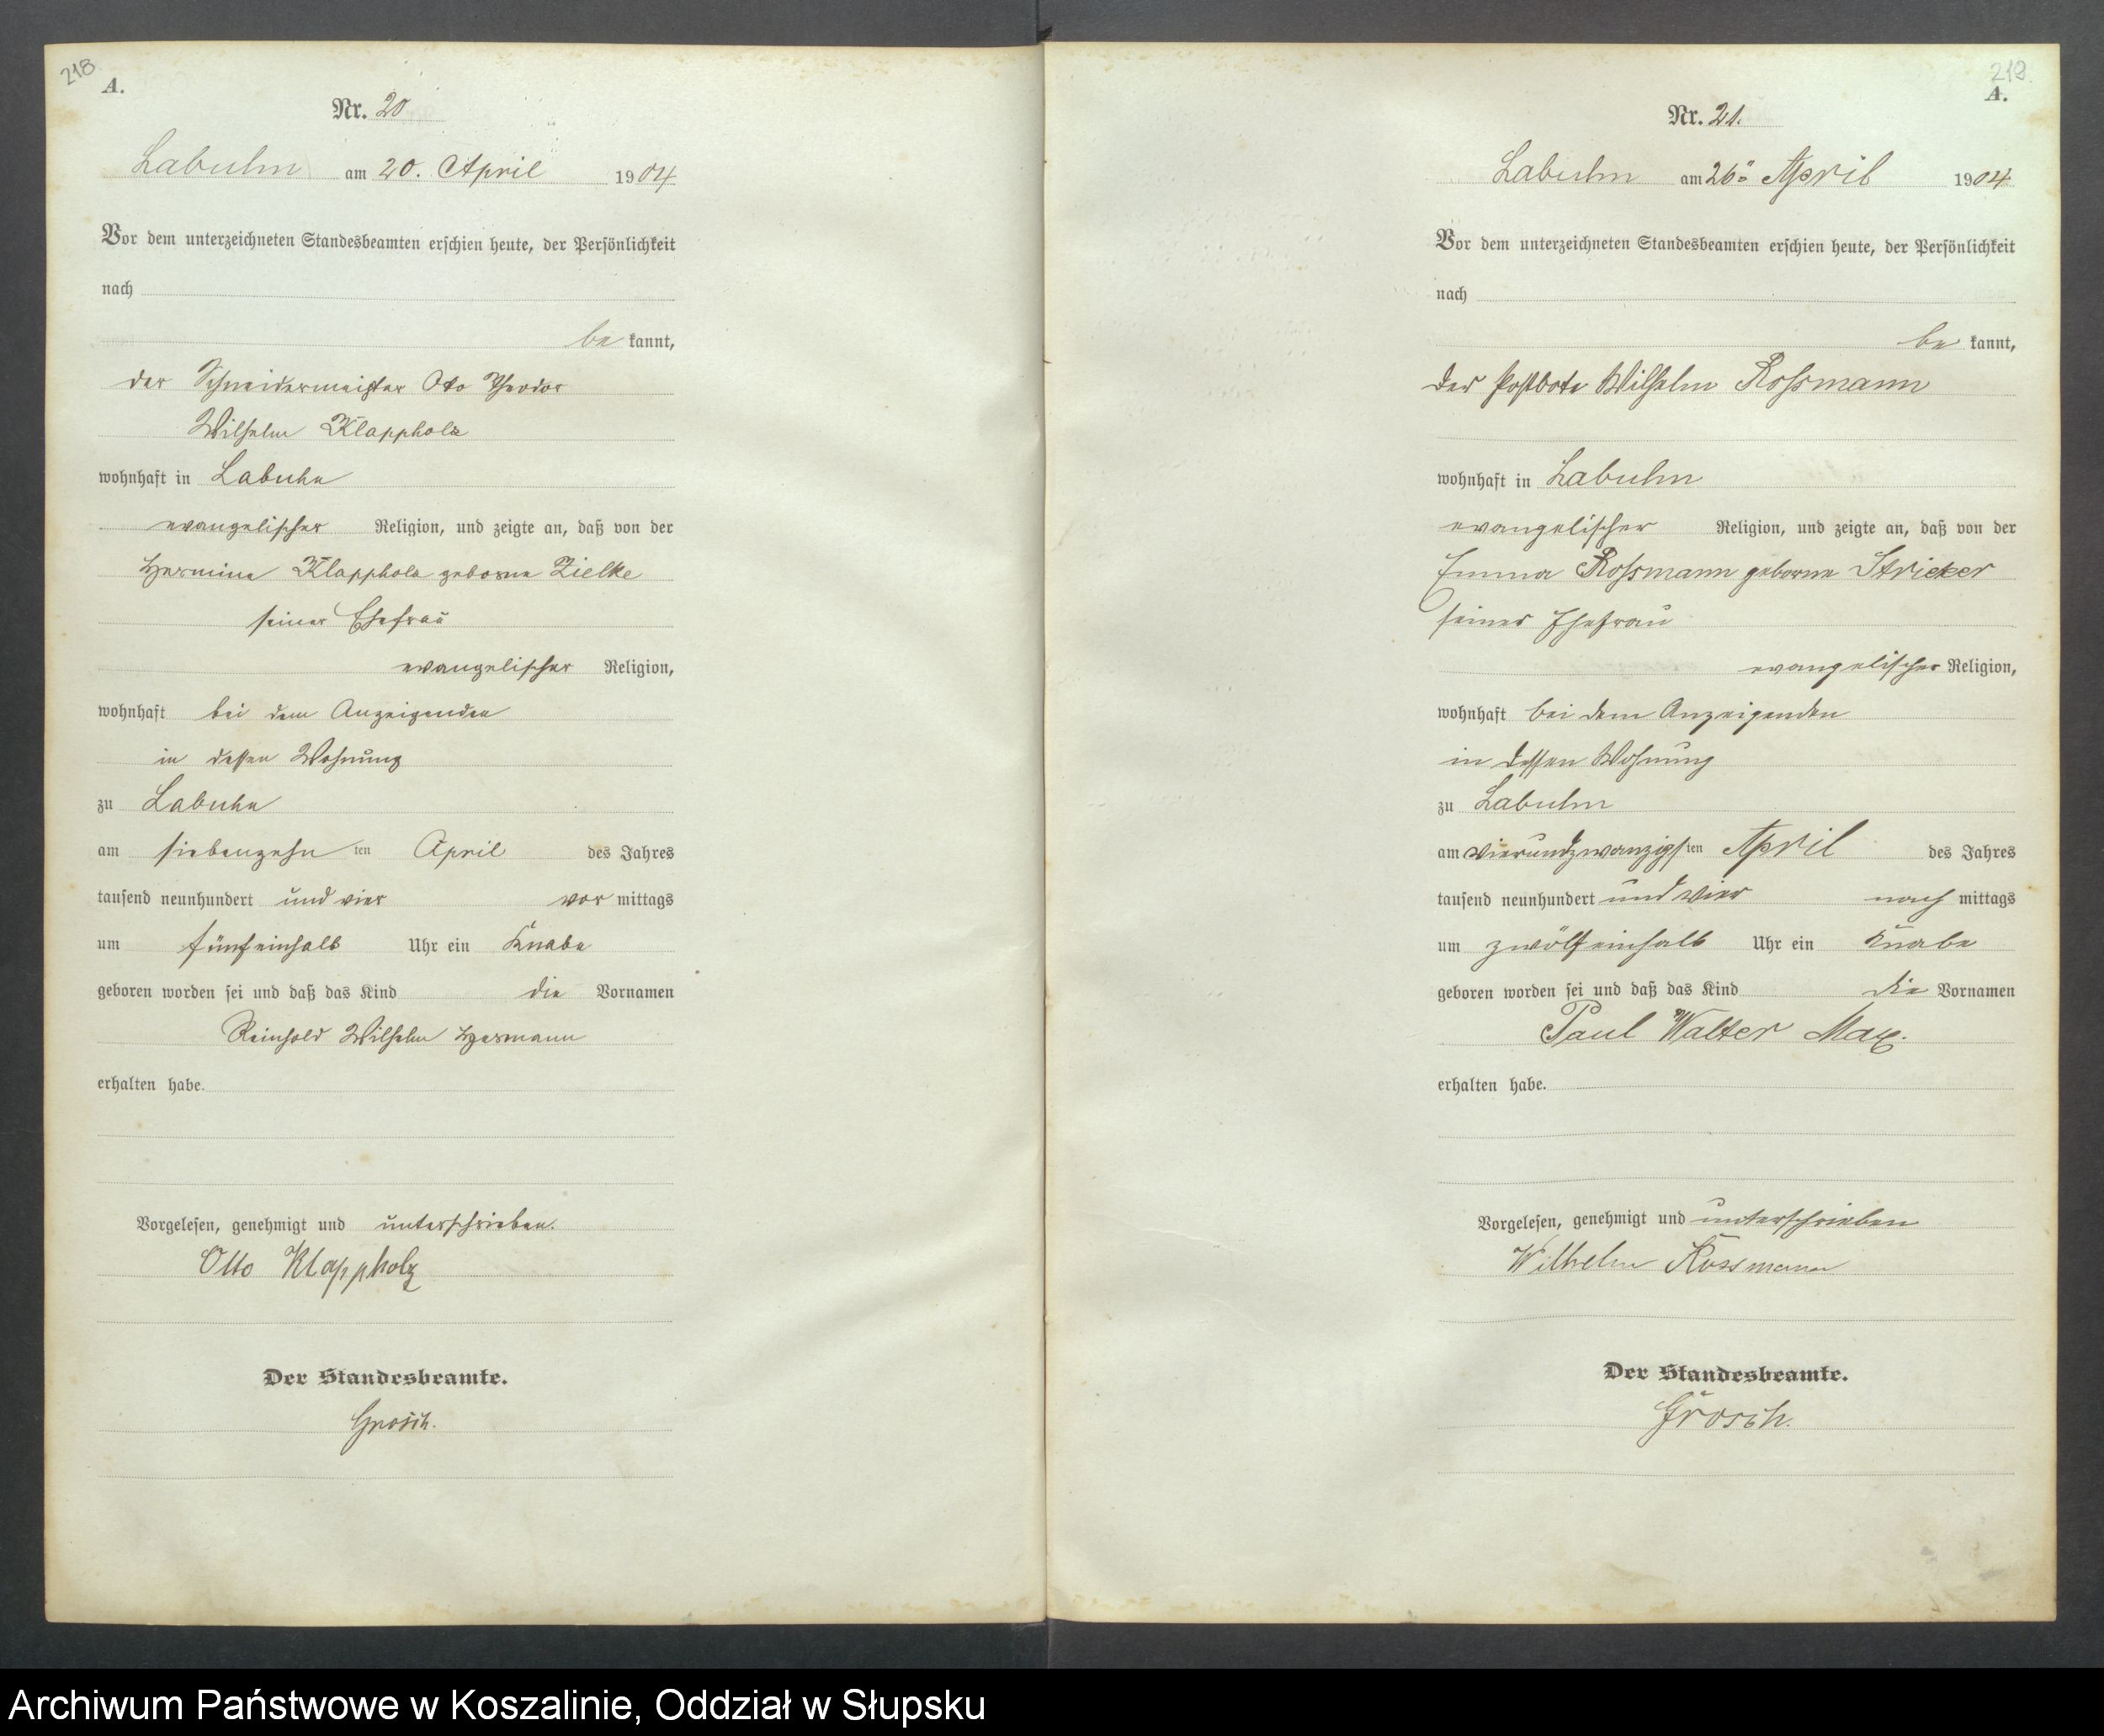 218
A.
Nr. 20
Labuhn am 20. April 1904
Vor dem unterzeichneten Standesbeamten erschien heute, der Persönlichkeit
nach
be kannt,
der Schneidermeister Otto Theodor
Wilhelm Klappholz
wohnhaft in Labuhn
evangelischer Religion, und zeigte an, daß von der
Hermine Klappholz geborne Zielke
seiner Ehefrau
evangelischer Religion,
wohnhaft bei dem Anzeigenden
in dessen Wohnung
zu Labuhn
am siebenzehn ten April des Jahres
tausend neunhundert und vier vor mittags
um fünfeinhalb Uhr ein Knabe
geboren worden sei und daß das Kind die Vornamen
Reinhold Wilhelm Hermann
erhalten habe.
Vorgelesen, genehmigt und unterschrieben.
Otto Klappholz
Der Standesbeamte.
Grosch.
219.
A.
Nr. 21.
Labuhn am 26. April 1904
Vor dem unterzeichneten Standesbeamten erschien heute, der Persönlichkeit
nach
be kannt,
der Postbote Wilhelm Rossmann
wohnhaft in Labuhn
evangelischer Religion, und zeigte an, daß von der
Emma Rossmann geborne Stricker
seiner Ehefrau
evangelischer Religion,
wohnhaft bei dem Anzeigenden
in dessen Wohnung
zu Labuhn
am vierundzwanzigsten April des Jahres
tausend neunhundert und vier nach mittags
um zwölfeinhalb Uhr ein Knabe
geboren worden sei und daß das Kind die Vornamen
Paul Walter Max.
erhalten habe.
Vorgelesen, genehmigt und unterschrieben
Wilhelm Rossmann
Der Standesbeamte.
Grosch.
Archiwum Państwowe w Koszalinie, Oddział w Słupsku